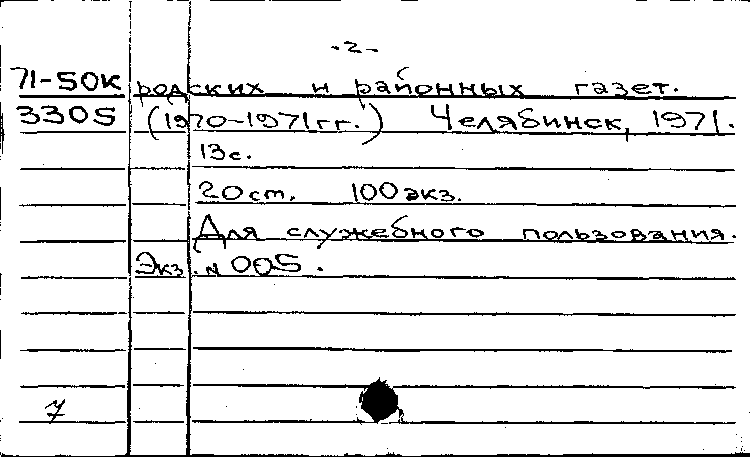 -2-
71-50к родских и районных газет.
3305 (1970-1971гг.) Челябинск, 1971.
13с.
20 ст. 100 экз.
Для служебного пользования.
Экз. N 005.
7